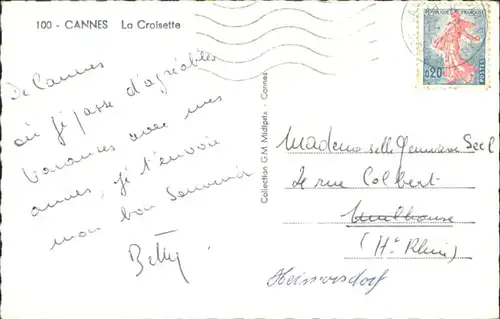 100 - CANNES La Croisette
RÉPUBLIQUE FRANÇAISE
0,20
POSTES
De Cannes
où je passe d'agréables
vacances avec mes
amies, je t'envoie
mon bon souvenir
Betty.
Collection G.M. Midiprix - Cannes
Mademoiselle Geneviève
2e rue Colbert
Mulhouse
(Ht Rhin)